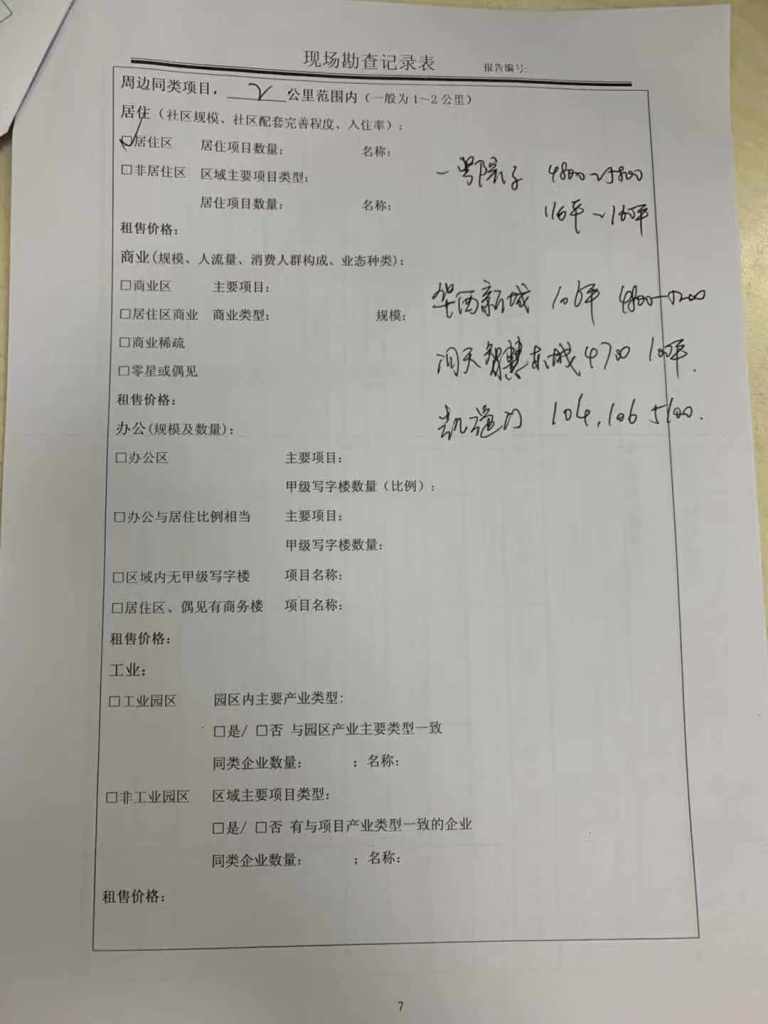 现场勘查记录表 报告编号:
周边同类项目, 2 公里范围内（一般为1~2公里）
居住（社区规模、社区配套完善程度、入住率）:
☑居住区 居住项目数量: 名称:
□非居住区 区域主要项目类型: 4800~5800
居住项目数量: 名称: 116平~160平
租售价格:
商业(规模、人流量、消费人群构成、业态种类):
□商业区 主要项目: 华西新城 106平 4800-5200
□居住区商业 商业类型: 规模:
□商业稀疏 润天智慧东城 4700
□零星或偶见
租售价格: 104,106 5100.
办公(规模及数量):
□办公区 主要项目:
甲级写字楼数量（比例）:
□办公与居住比例相当 主要项目:
甲级写字楼数量:
□区域内无甲级写字楼 项目名称:
□居住区、偶见有商务楼 项目名称:
租售价格:
工业:
□工业园区 园区内主要产业类型:
□是/ □否 与园区产业主要类型一致
同类企业数量: ; 名称:
□非工业园区 区域主要项目类型:
□是/ □否 有与项目产业类型一致的企业
同类企业数量: ; 名称:
租售价格:
7